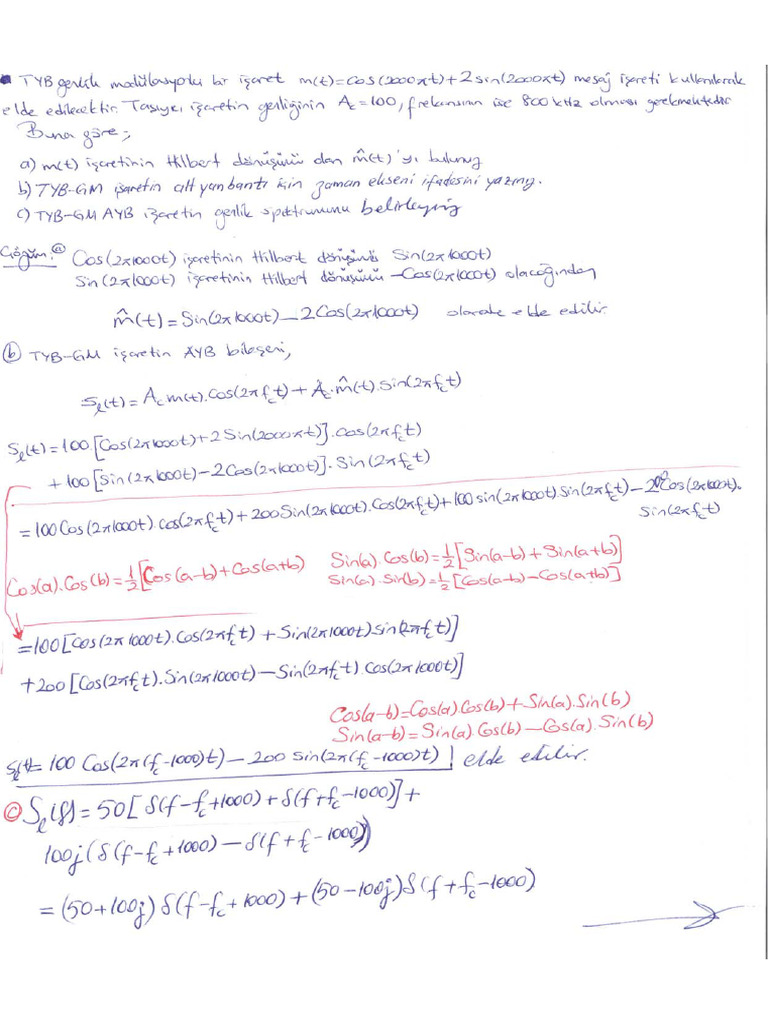 TYB genlik modülasyonlu bir işaret m(t)=Cos(2000πt)+2sin(2000πt) mesaj işareti kullanılarak
elde edilecektir. Taşıyıcı işaretin genliğinin Ac=100, frekansının ise 800 kHz olması gerekmektedir
Buna göre;
a) m(t) işaretinin Hilbert dönüşümü olan m̂(t)'yi bulunuz
b) TYB-GM işaretin alt yan bantı için zaman ekseni ifadesini yazınız.
c) TYB-GM AYB işaretin genlik spektrumunu belirleyiniz
Çözüm: a) Cos(2π1000t) işaretinin Hilbert dönüşümü Sin(2π1000t)
Sin(2π1000t) işaretinin Hilbert dönüşümü -Cos(2π1000t) olacağından
m̂(t)=Sin(2π1000t)-2Cos(2π1000t) olarak elde edilir.
b) TYB-GM işaretin AYB bileşeni,
Sℓ(t)=Ac m(t).Cos(2πfct)+Ac.m̂(t).Sin(2πfct)
Sℓ(t)=100[Cos(2π1000t)+2Sin(2000πt)].Cos(2πfct)
+100[Sin(2π1000t)-2Cos(2π1000t)].Sin(2πfct)
=100Cos(2π1000t).Cos(2πfct)+200Sin(2π1000t).Cos(2πfct)+100sin(2π1000t).Sin(2πfct)-200Cos(2π1000t).
Sin(2πfct)
Cos(a).Cos(b)=1/2[Cos(a-b)+Cos(a+b)] Sin(a).Cos(b)=1/2[Sin(a-b)+Sin(a+b)]
Sin(a).Sin(b)=1/2[Cos(a-b)-Cos(a+b)]
=100[Cos(2π1000t).Cos(2πfct)+Sin(2π1000t)sin(2πfct)]
+200[Cos(2πfct).Sin(2π1000t)-Sin(2πfct).Cos(2π1000t)]
Cos(a-b)=Cos(a)Cos(b)+Sin(a).Sin(b)
Sin(a-b)=Sin(a).Cos(b)-Cos(a).Sin(b)
Sℓ(t)=100Cos(2π(fc-1000)t)-200Sin(2π(fc-1000)t) elde edilir.
c) Sℓ(f)=50[δ(f-fc+1000)+δ(f+fc-1000)]+
100j(δ(f-fc+1000)-δ(f+fc-1000))
=(50+100j)δ(f-fc+1000)+(50-100j)δ(f+fc-1000)